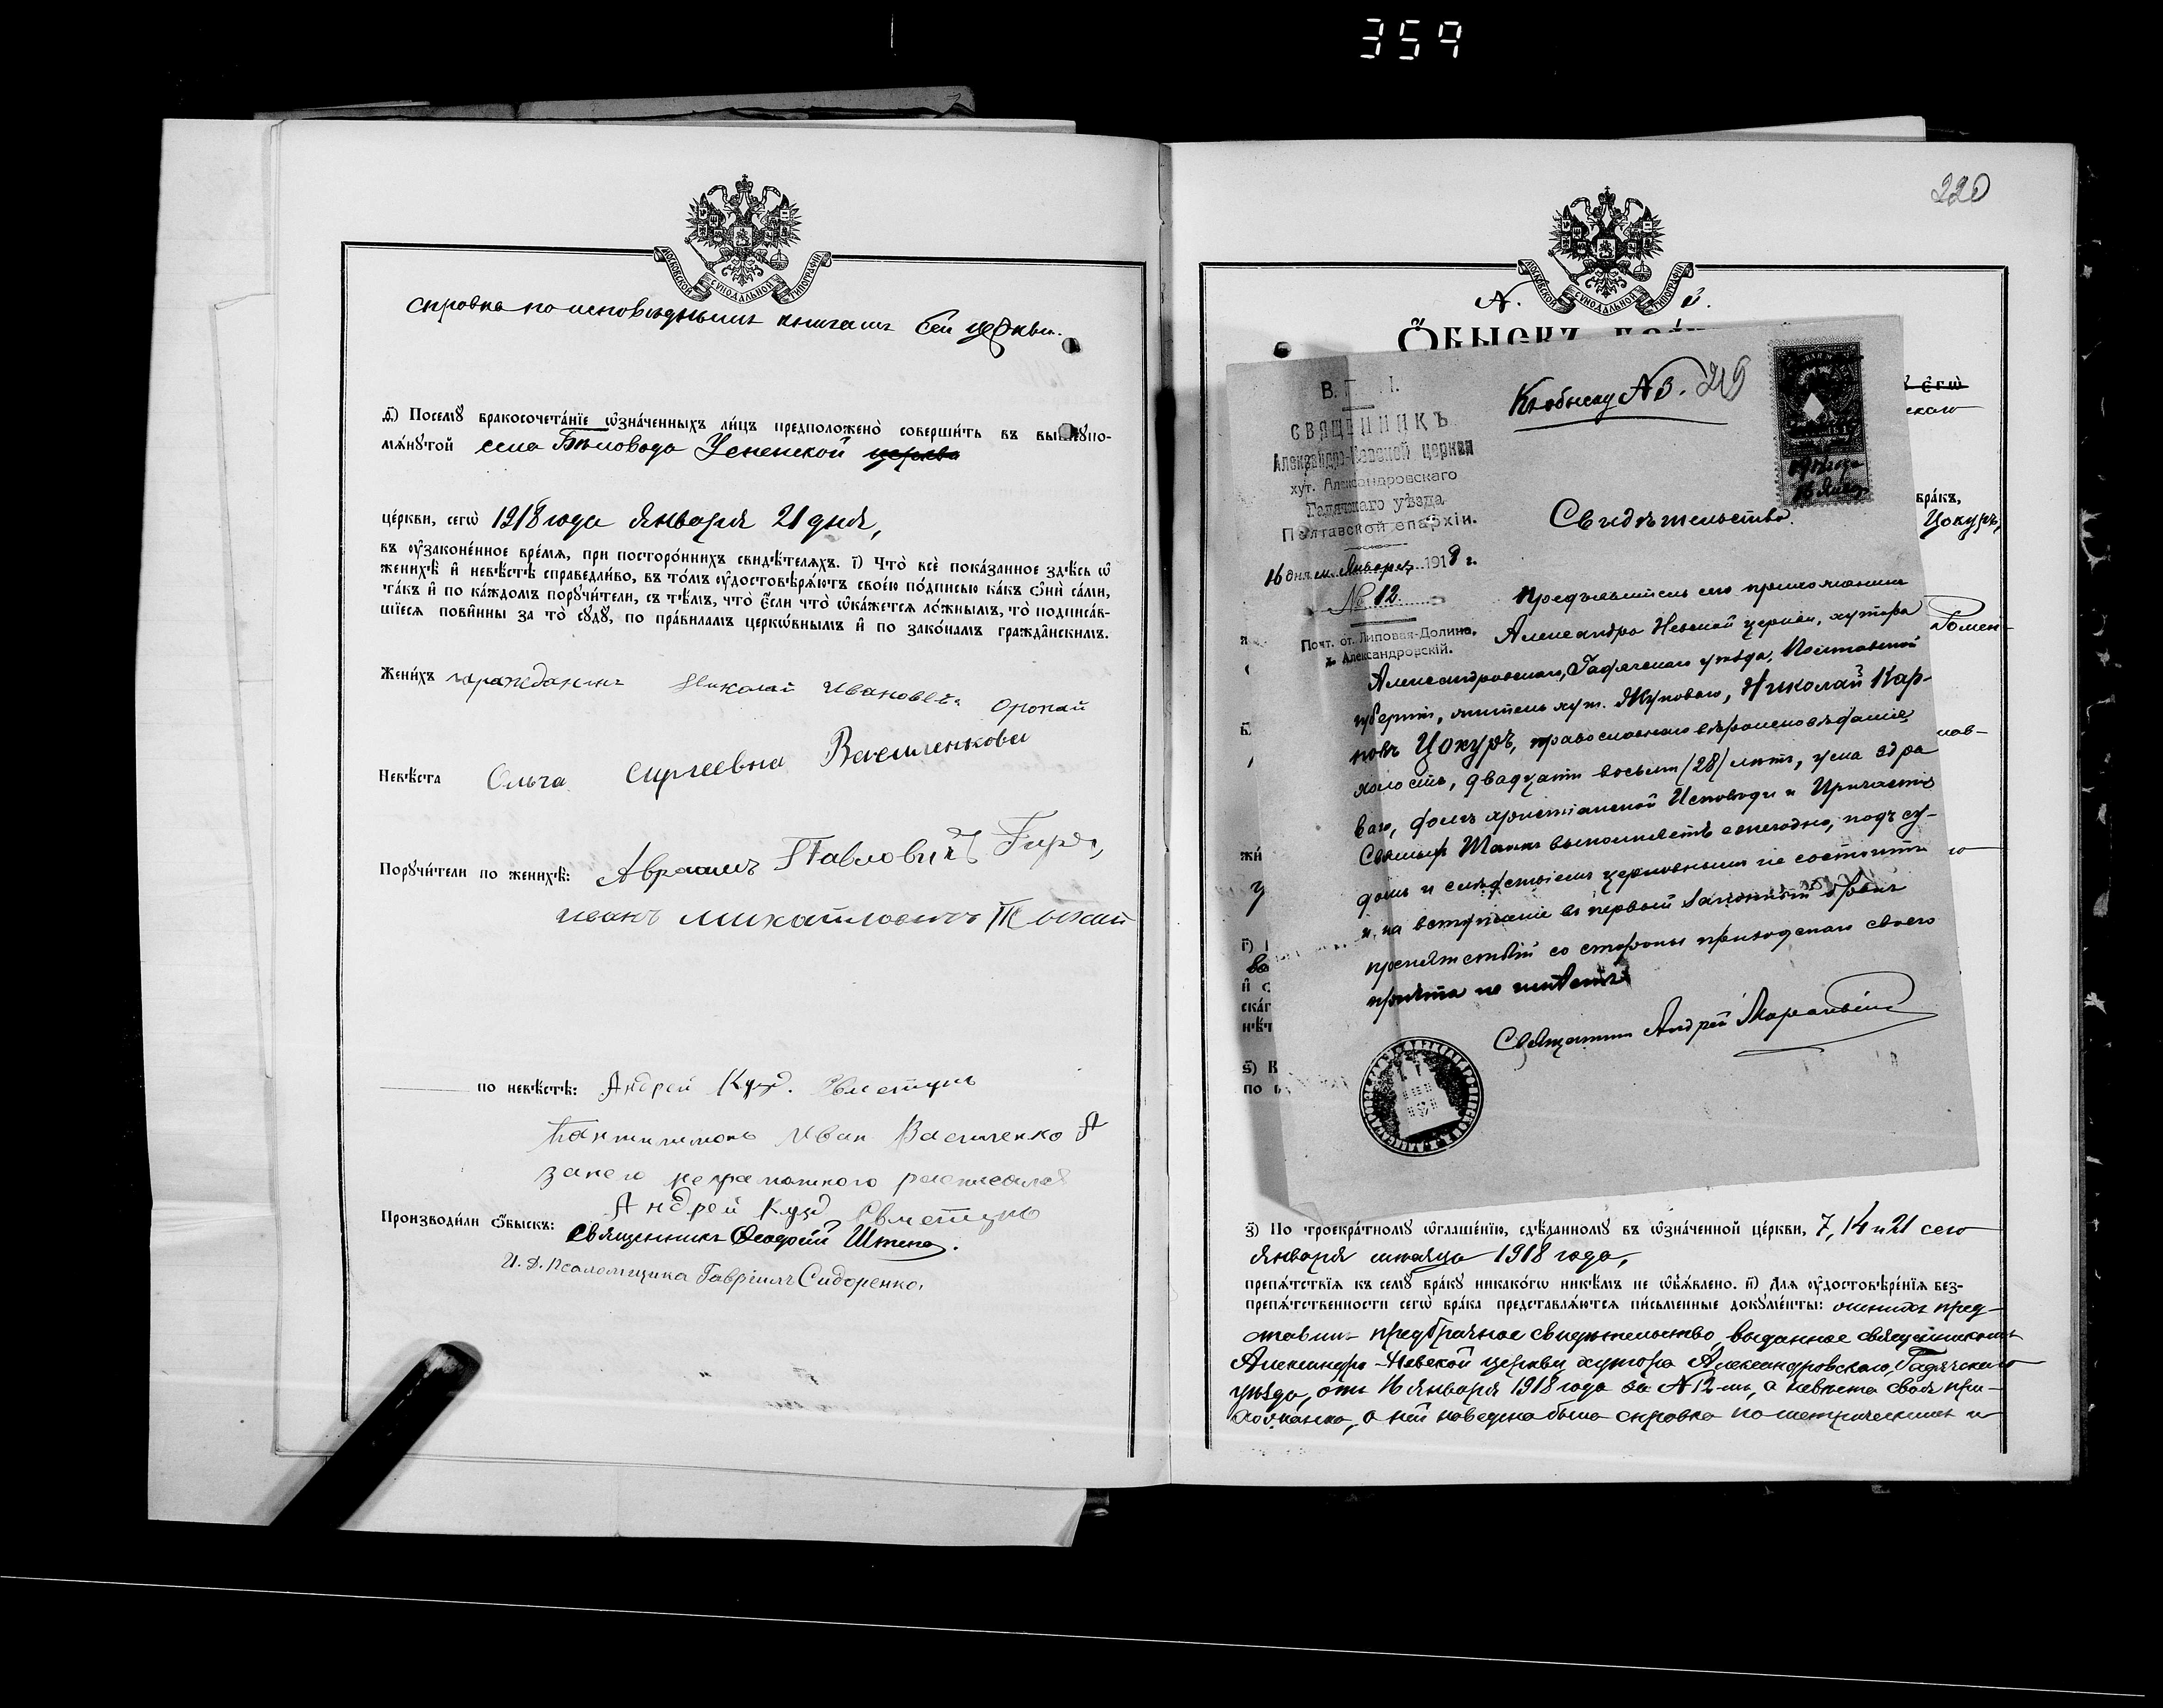 359
МОСКОВСКОЙ СѴНОДАЛЬНОЙ ТИПОГРАФІИ
справка по исповѣднымъ книгамъ сей церкви.
д҃) Посемꙋ̀ бракосочета́нїе ѡ҆зна́ченныхъ ли́цъ предположено̀ соверши́ть въ вышеупо-
мѧ́нꙋтой села Бѣловода Успенской
це́ркви, сегѡ̀ 1918 года января 21 дня,
въ ᲂу҆законе́нное вре́мѧ, при посторо́ннихъ свидѣ́телѧхъ. і҃) Что̀ всѐ пока́занное здѣ́сь ѡ҆
женихѣ̀ и҆ невѣ́стѣ справедли́во, въ то́мъ ᲂу҆достовѣрѧ́ютъ свое́ю по́дписью ка́къ ѻ҆нѝ са́ми,
та́къ и҆ по ка́ждомъ порꙋчи́тели, съ тѣ́мъ, что̀ є҆́сли что̀ ѡ҆ка́жетсѧ ло́жнымъ, то̀ подписа́в-
шїесѧ пови́нны за то̀ сꙋдꙋ̀, по пра́виламъ церкѡ́внымъ и҆ по зако́намъ гражда́нскимъ.
Жени́хъ гражданинъ Николай Ивановъ
Невѣ́ста Ольга Сергеевна Василенкова
Порꙋчи́тели по женихѣ̀: Аврамъ Павловичъ
иванъ михайловичъ
по невѣ́стѣ: Андрей Кузд.
Пантилимонъ Иван Василенко А
за него неграмотного росписался
Андрей Кузд
Производи́ли ѻ҆́быскъ: Священникъ Ѳеодоръ
И. д. псаломщика Гавріилъ Сидоренко.
220
МОСКОВСКОЙ СѴНОДАЛЬНОЙ ТИПОГРАФІИ
Ѻ҆́БЫСКЪ
Къ обыску № 3. 219
СВЯЩЕННИКЪ
Александро-Невской церкви
хут. Александровскаго
Гадячскаго уѣзда
Полтавской епархіи.
16 дня м. Января 1918 г.
№ 12.
Почт. от. Липовая-Долина,
х. Александровскій.
16 Январ
Свидѣтельство.
бра́къ,
Цокуръ,
Предъявитель сего прихожанинъ
Александро Невской церкви, хутора
Ромен-
Александровскаго, Гадячскаго уѣзда, Полтавской
губерніи, житель хут. Жукова, Николай Кар-
повъ Цокуръ, православнаго вѣроисповѣданія,
холостъ, двадцати восьми (28) лѣтъ, ума здра
ваго, долгъ христіанской Исповѣди и Причастія
Святыхъ Таинъ выполняетъ ежегодно, подъ су-
домъ и слѣдствіемъ церковнымъ не состоитъ
и на вступленіе въ первый законный бракъ
препятствій со стороны приходскаго своего
причта не имѣетъ
Священникъ Андрей
з҃) По троекра́тномꙋ ѡ҆глаше́нїю, сдѣ́ланномꙋ въ ѡ҆зна́ченной це́ркви, 7, 14 и 21 сего
января мѣсяца 1918 года,
препѧ́тствїѧ къ семꙋ̀ бра́кꙋ никако́гѡ никѣ́мъ не ѡ҆б̾ѧ́влено. и҃) Длѧ ᲂу҆достовѣре́нїѧ без-
препѧ́тственности сегѡ̀ бра́ка представлѧ́ютсѧ пи́сьменные докꙋме́нты: женихъ пред-
ставилъ предбрачное свидѣтельство, выданное священникомъ
Александро-Невской церкви хутора Александровскаго, Гадячскаго
уѣзда, отъ 16 января 1918 года за № 12-мъ, а невѣста своя при-
хожанка, о ней наведена была справка по метрическимъ и